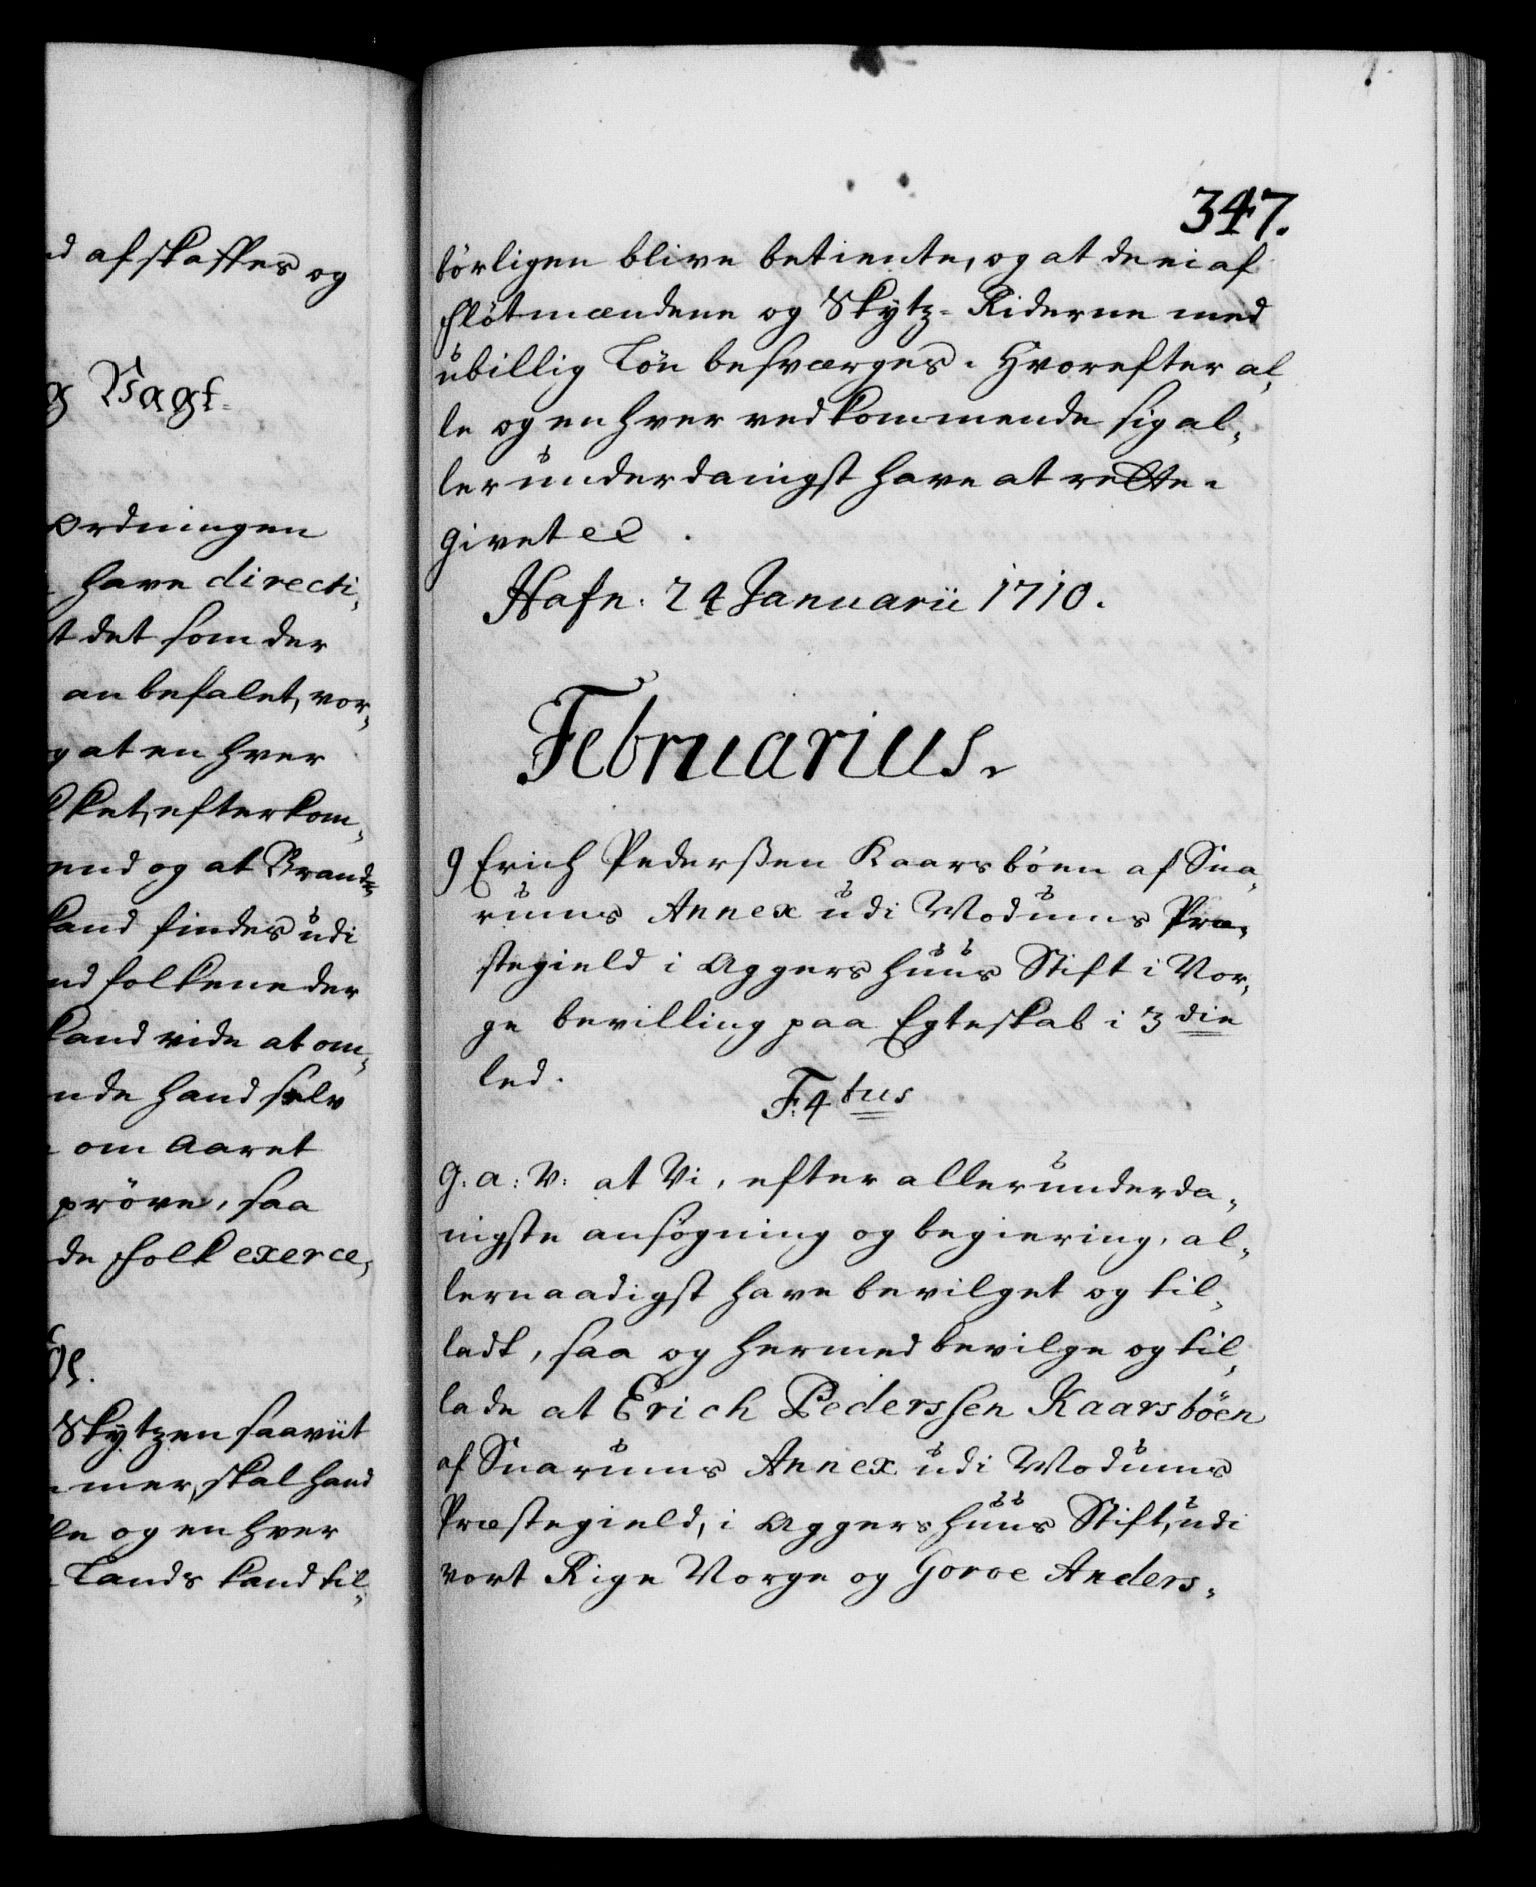 nd afskaffes og
g Vagt-
ordningen
have directi,
t det som der
anbefalet, vor,
g at en hver
ket, efterkom,
end og at Brand=
kand findes udi
nd folkene der
kand vide at om,
nde hand selv
om Aaret
prøve, saa
de Folk exerce,
Skytzen saaviit
mer, skal hand
le og en hver
Lands kand til,
347.
børligen blive betiente, og at de ei af
Fløtmændene og Skytz-Riderne med
ubillig Løn besværges. Hvorefter al,
le og en hver vedkommende sig al,
lerunderdanigst have at rette.
Givet etc.
Hafn. 24 Januarii 1710.
Februarius.
9 Erich Pederßen Kaarsbøen af Sna,
rums Annex udi Modums Præ,
stegield i Aggershuus Stift i Nor,
ge bevilling paa Egteskab i 3 die
led.
F. 4 tus
G. A: V: at Vi, efter allerunderda,
nigste ansøgning og begiering, al,
lernaadigst have bevilget og til,
ladt, saa og hermed bevilge og til,
lade at Erich Pederssen Kaarsbøen
af Snarums Annex udi Modums
Præstegield, i Aggershuus Stift, udi
vort Rige Norge og Goroe Anders,